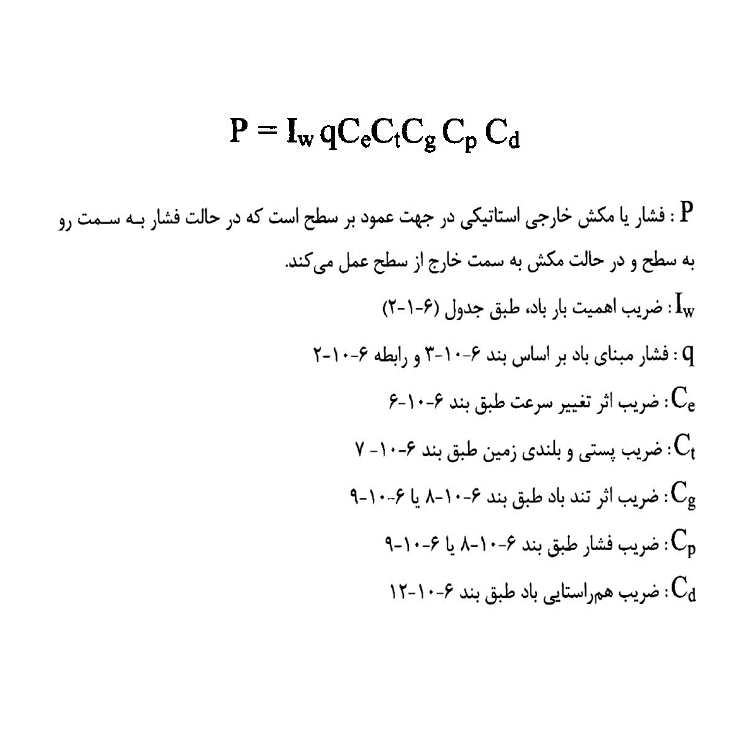 P = I_w qC_eC_tC_g C_p C_d
P : فشار یا مکش خارجی استاتیکی در جهت عمود بر سطح است که در حالت فشار بـه سـمت رو
به سطح و در حالت مکش به سمت خارج از سطح عمل می‌کند.
I_w : ضریب اهمیت بار باد، طبق جدول (۶-۱-۲)
q : فشار مبنای باد بر اساس بند ۶-۱۰-۳ و رابطه ۶-۱۰-۲
C_e : ضریب اثر تغییر سرعت طبق بند ۶-۱۰-۶
C_t : ضریب پستی و بلندی زمین طبق بند ۶-۱۰- ۷
C_g : ضریب اثر تند باد طبق بند ۶-۱۰-۸ یا ۶-۱۰-۹
C_p : ضریب فشار طبق بند ۶-۱۰-۸ یا ۶-۱۰-۹
C_d : ضریب هم‌راستایی باد طبق بند ۶-۱۰-۱۲